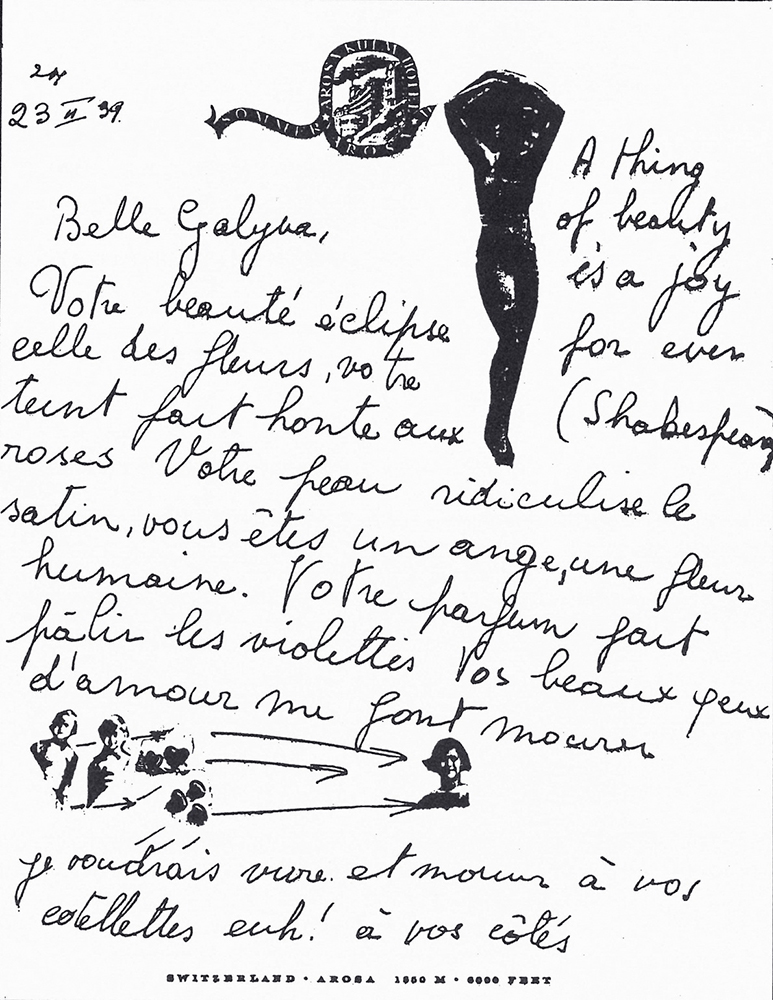 24
23 II 39.
AROSA KULM HOTEL
SOMMER AROSA
A thing
of beauty
is a joy
for ever
(Shakespeare
Belle Galyna,
Votre beauté éclipse
celle des fleurs, votre
teint fait honte aux
roses Votre peau ridiculise le
satin, vous êtes un ange, une fleur
humaine. Votre parfum fait
pâlir les violettes Vos beaux yeux
d'amour me font mourir
je voudrais vivre et mourir à vos
cotellettes euh! à vos côtés
SWITZERLAND · AROSA 1850 M · 6000 FEET